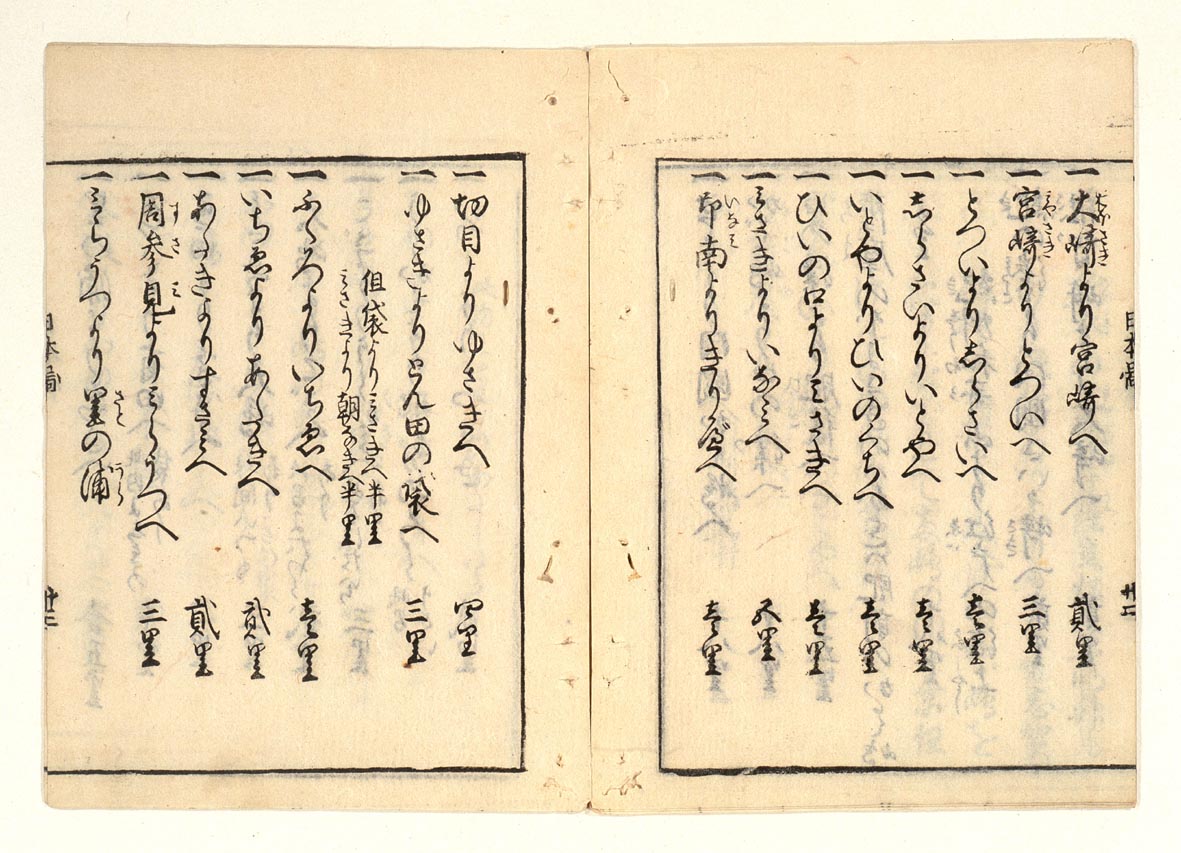 一 大崎より宮崎へ 貳里
おほさき
一 宮崎よりとついへ 三里
みやさき
一 とついよりしらさいへ 壱里
一 しらさいよりいとやへ 壱里
一 いとやよりひいのくちへ 壱里
一 ひいの口よりみさきへ 壱里
一 みさきよりいなみへ 五里
一 印南よりきりめへ 壱里
いなみ
日本圖 廿二
一 切目よりゆさきへ 四里
一 ゆさきよりとん田の袋へ 三里
但袋よりみさきへ半里
みさきより朝なきへ半里
一 ふくろよりいちゑへ 壱里
一 いちゑよりあつきへ 貳里
一 あつきよりすさみへ 貳里
一 周参見よりみらうつへ 三里
すさみ
一 みらうつより里の浦
さと うら
日本圖 廿二